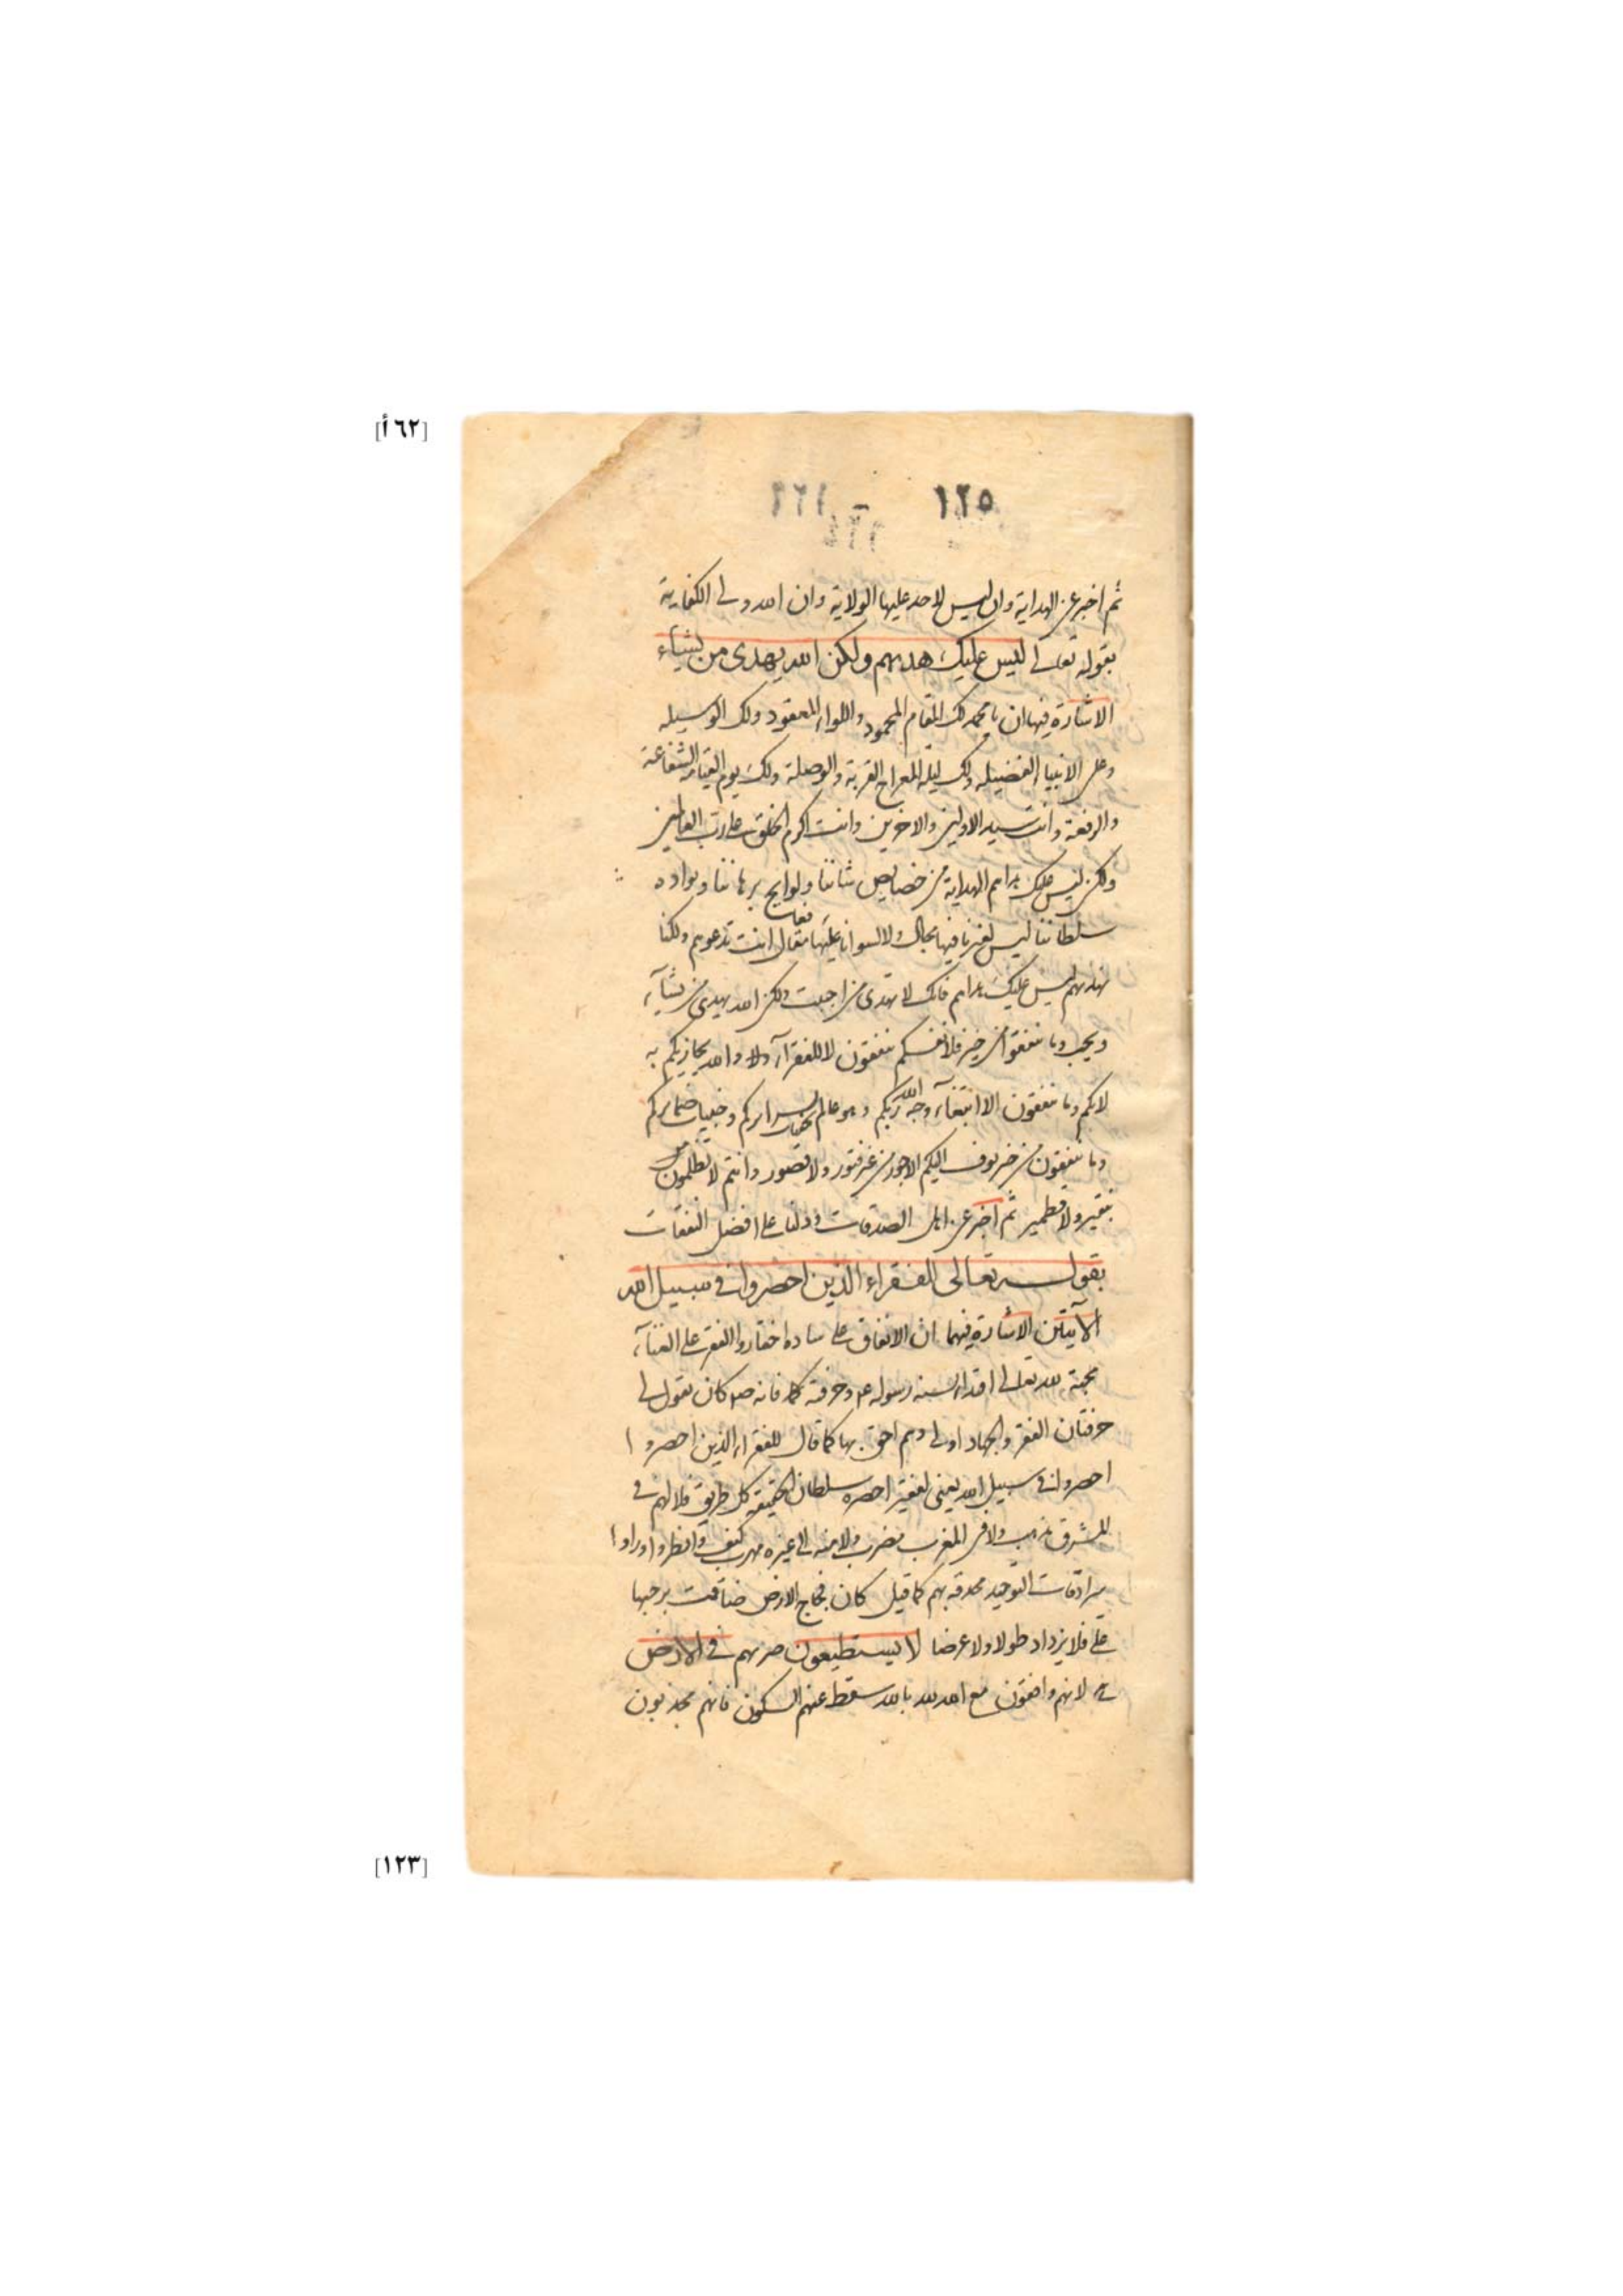 [٦٢أ]
١٢٥
ثم اخبر عن الهداية وان ليس لاحد عليها الولاية وان الله ولى الكفاية
بقوله تعالى ليس عليك هديهم ولكن الله يهدى من يشاء
الاشارة فيها ان يا محمد لك المقام المحمود واللواء المعقود ولك الوسيله
وعلى الانبيا الفضيله ولك ليلة المعراج القربة والوصلة ولك يوم القيامة الشفاعة
والرفعة وانت سيد الاولين والاخرين وانت اكرم الخلق على رب العالمين
ولكن ليس عليك هداهم الهداية من خصايص شاننا ولوايح برهاننا وبواده
سلطاننا ليس لغيرنا فيها مجال ولا لسوانا عليها مقال انت تدعوهم ولكنا
نهديهم ليس عليك هداهم فانك لا تهدى من احببت ولكن الله يهدى من يشآء
ويحب وما تنفقوا من خير فلانفسكم تنفقون لا للفقرآء ولا والله يجازيكم به
لانكم وما تنفقون الا ابتغآء وجه الله ربكم وهو عالم سرايركم وخفيات ضمايركم
وما تنفقون من خير يوف اليكم الاجور من غير فتور ولا قصور وانتم لا تظلمون
بنقير ولا قطمير ثم اخبر عن اهل الصدقات ودلنا على افضل النفقات
بقوله تعالى للفقراء الذين احصروا فى سبيل الله
الآيتين الاشارة فيهما ان الانفاق على ساده اختاروا الفقر على الغنآء
محبة لله تعالى اقتداء لسنه رسوله وحرفة فانه كان يقول لى
حرفتان الفقر والجهاد اولى وهم احق بها كما قال للفقراء الذين احصروا
احصروا فى سبيل الله يعنى لفقير احصره سلطان الحقيقة كل طريق فلا لهم فى
المشرق مذهب ولا فى المغرب مضرب ولا منه الى غيره مهرب كيف وانظروا وراوا
سرادقات التوحيد محدقة بهم كما قيل كان فجاج الارض ضاقت برحبها
على فلا يزداد طولا ولا عرضا لا يستطيعون ضربهم فى الارض
لانهم واقفون مع الله لله بالله سقط عنهم السكون فانهم مجذوبون
[١٢٣]